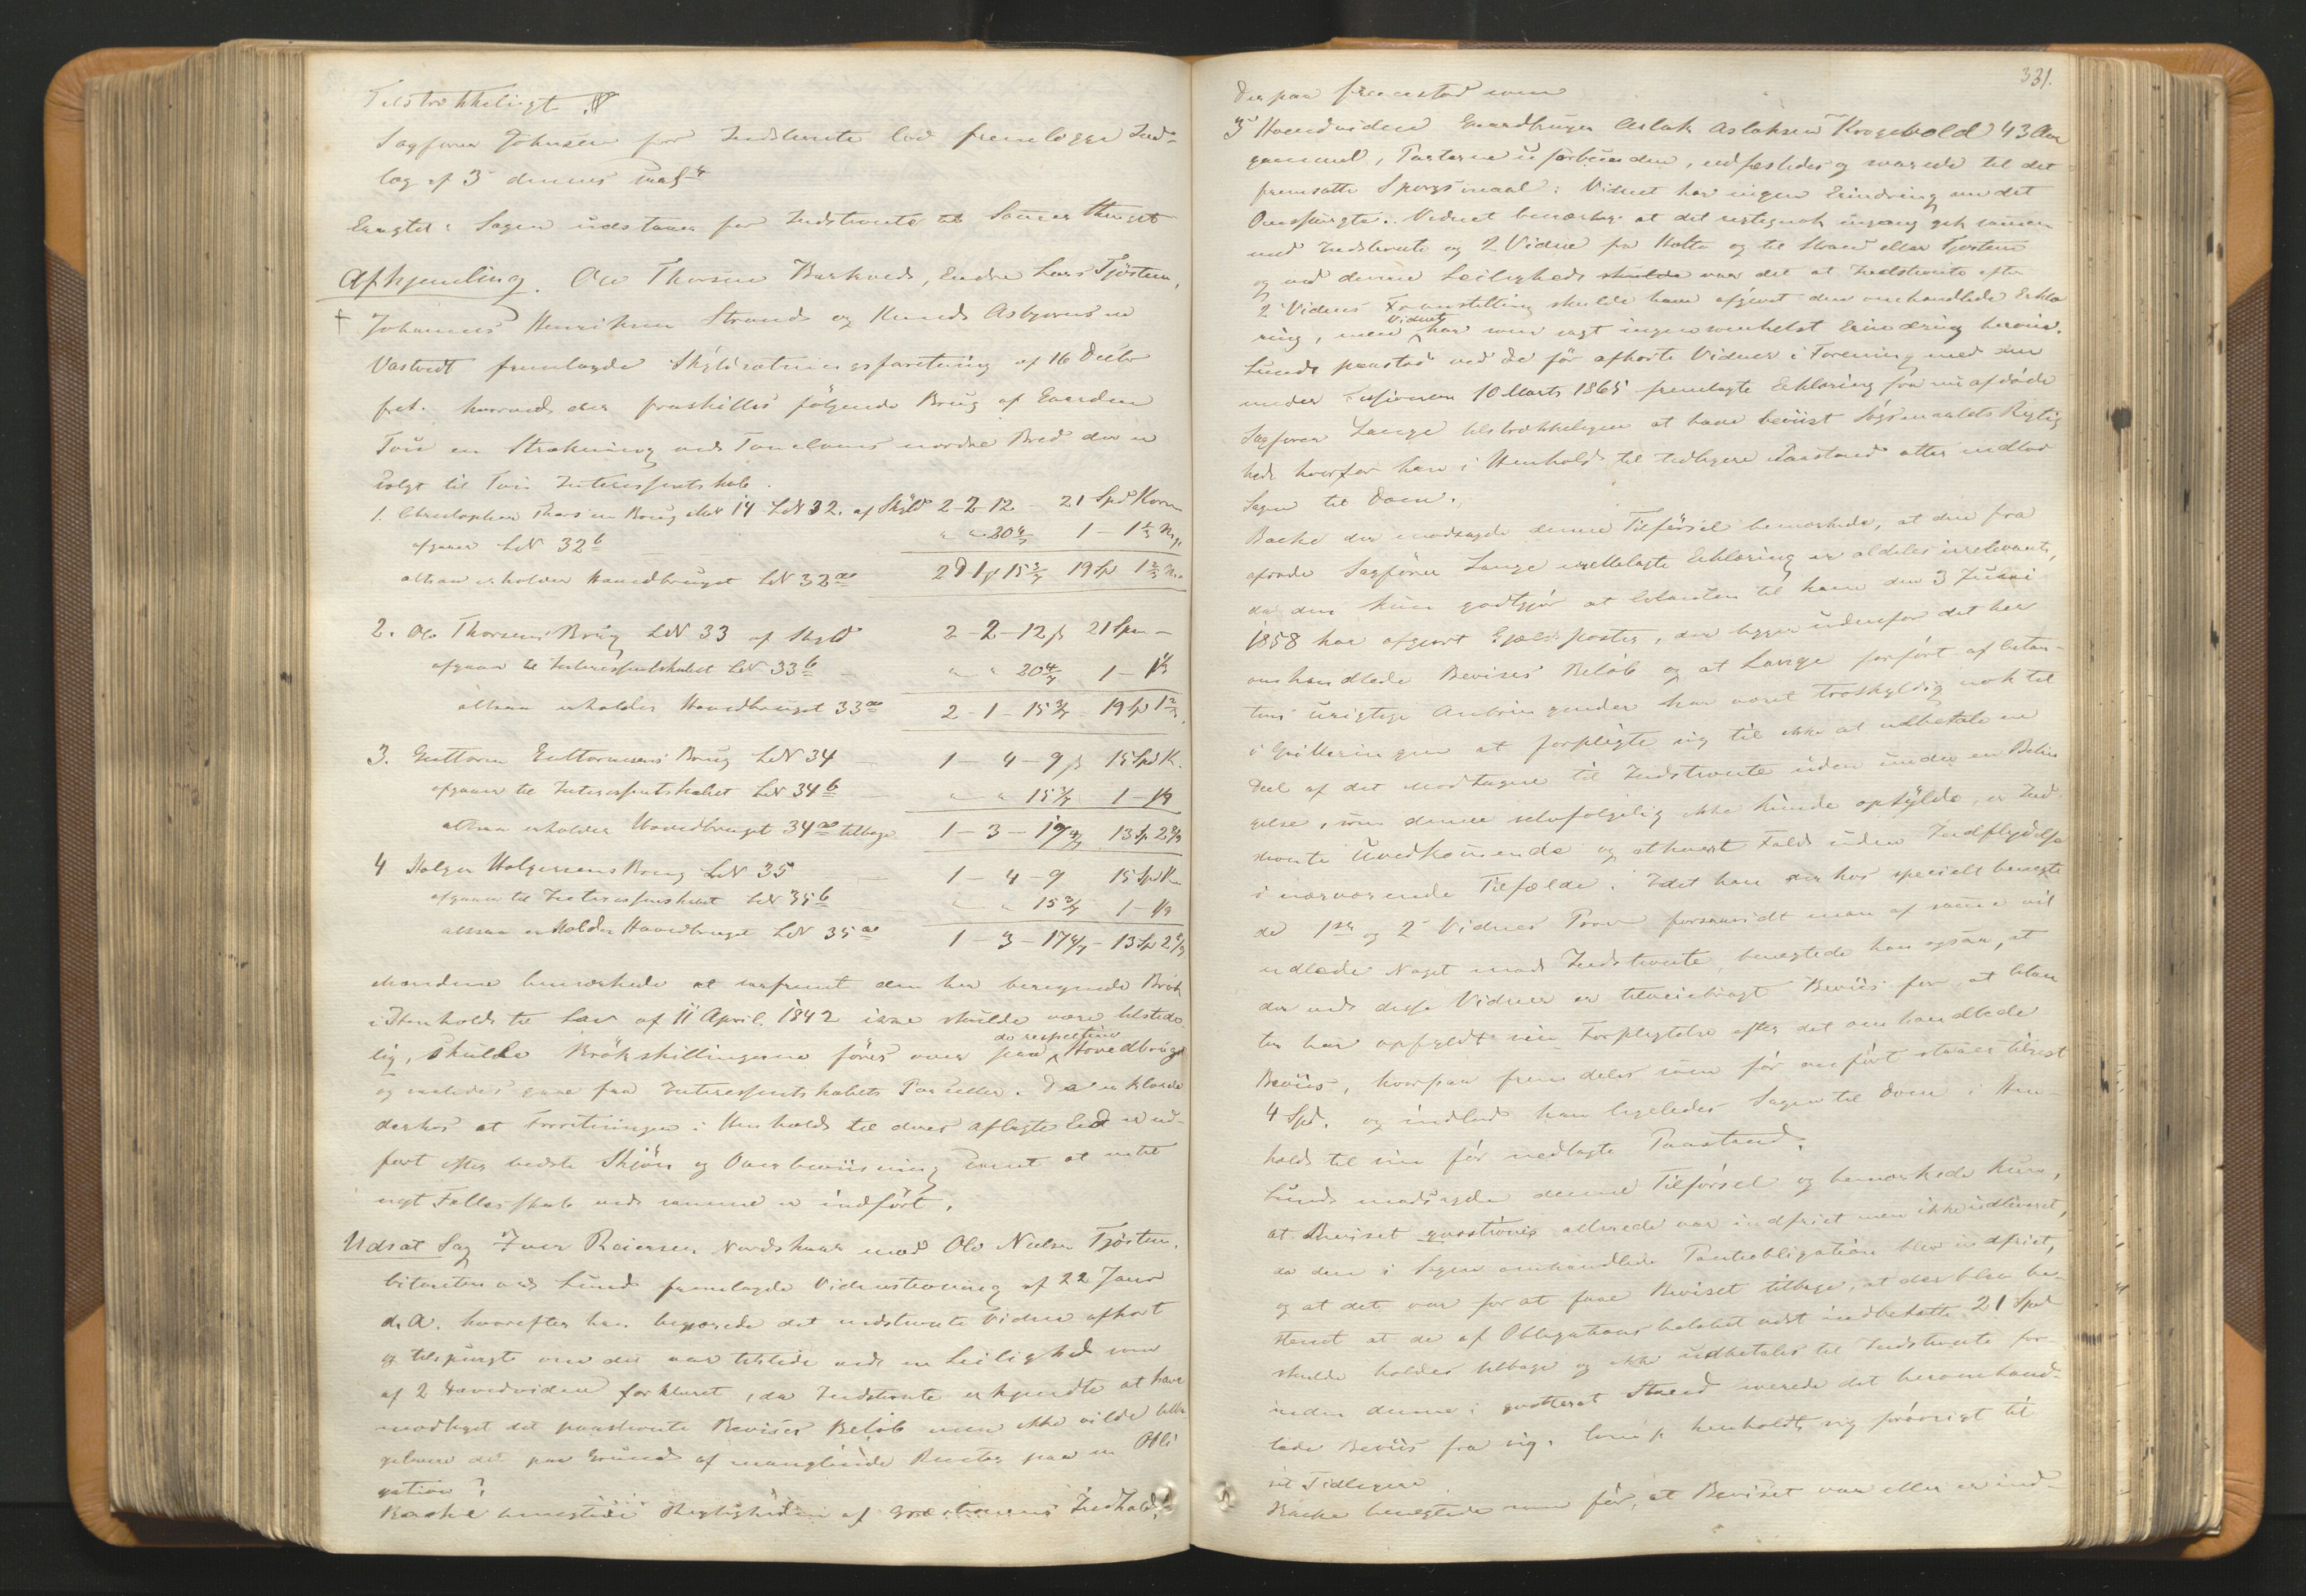 Tilstrækkeligt.
Sagfører Johnsen for Indstevnte lod fremlægge Ind-
læg af 3 dennes
Eragtet: Sagen udstaaer for Indstevnte til
Afhjemling. Ole Thorsen Barkved, Endre Lars Tjøstem,
Johannes Henriksen Strand og Knud Asbjørnsen
Vastvedt fremlagde Skyldsætningsforretning af 16 Decbr
fret. hvorved der fraskilles følgende Brug af Gaarden
Tou en Strækning ved Touelvens nordre Bred der er
solgt til Tou Interessentskab.
1. Christopher Thorsens Brug MN 14 LN 32. af Skyld 2-2-12 - 21 Spd Korn
afgaaer LN 32b " " 20 4/7 1 - 1 1/3 Mrk.
altsaa erholder Hovedbruget LN 32a 2 D 1 15 3/7 19 Sp 1 2/3 M.
2. Ole Thorsens Brug LN 33 af Skyld 2-2-12 ß 21 Span -
afgaaer til Interessentskabet LN 33b " " 20 4/7 1 - 1/3
altsaa erholder Hovedbruget 33a 2-1-15 3/7 19 Sp 1 2/3
3. Guttorm Guttormsens Brug LN 34 1-4-9 ß 15 Spd K.
afgaaer til Interessentskabet LN 34b " " 15 3/7 1 - 1/3
altsaa erholder Hovedbruget 34a tilbage 1-3-17 4/7 13 Sp. 2 2/3
4 Holger Holgersens Brug LN 35 1-4-9 15 Spd K
afgaaer til Interessentskabet LN 35b " " 15 3/7 1 - 1/3
altsaa erholder Hovedbruget LN 35a 1-3-17 4/7 - 13 Sp 2 2/3
Mændene bemærkede at saafremt den her beregnede Brøk
i Henhold til Lov af 11 April 1842 ikke skulde være tilstede-
lig, skulde Brøkskillingerne føres over paa de respective Hovedbrug
og saaledes gaae fra Interessentskabets Parceller. De erklærede
derhos at Forretningen i Henhold til deres aflagte Eed er ud-
ført efter bedste Skjøn og Overbeviisning samt at intet
nyt Fællesskab ved samme er indført.
Udsat Sag Iver Reiersen Nordskaar mod Ole Nielsen Tjøstem.
Citanten ved Lund fremlagde Vidnestevning af 22 Janr
d. A. hvorefter han begjærede det indstevnte Vidne afhørt
og tilspurgt om det var tilstede ved en Leilighed som
af 2 Hovedvidne forklaret, da Indstevnte erkjendte at have
modtaget det paastevnte Bevises Beløb men ikke vilde tilba
gelevere det paa Grund af manglende Renter paa en Obli
gation?
Backe benegtede Rigtigheden af Qvæstionens Indhold.
331.
Derpaa fremstod som
3 Hovedvidne Gaardbruger Aslak Aslaksen Krogevold 43 Aar
gammel, Parterne uforbunden, edfæstedes og svarede til det
fremsatte Spørgsmaal: Vidnet har ingen Erindring om det
Omspurgte. Vidnet bemærker at det rigtignok engang gik sammen
med Indstevnte og 2 Vidne fra Holta og til Strand eller Tjøstem
og ved denne Leilighed skulde var det at Indstevnte efter
2 Vidnes Fremstilling skulde have afgivet den omhandlede Erklæ
ring, men Vidnet har som sagt ingensomhelst Erindring herom.
Lund paastod ved de før afhørte Vidner i Forening med den
under Sessionen 10 Marts 1865 fremlagte Erklæring fra nu afdøde
Sagfører Lange tilstrækkeligen at have beviist Søgsmaalets Rigtig
hed hvorfor han i Henhold til tidligere Paastand atter indlod
Sagen til Dom.
Backe der modsagde denne Tilførsel bemærkede, at den fra
afdøde Sagfører Lange irettelagte Erklæring er aldeles irrelevant,
da den kun godtgjør at Citanten til ham den 3 Juni
1858 har afgjort Gjældsposter, der ligger udenfor det her
omhandlede Bevises Beløb og at Lange forført af Citan-
tens urigtige Anbringender har været troskyldig nok til
i Qvitteringen at forpligte sig til ikke at udbetale en
Deel af det Modtagne til Indstevnte uden under en Betin
gelse, som denne selvfølgelig ikke kunde opfylde, er Ind
stevnte uvedkommende og ethvert Fald uden Indflydelse
i nærværende Tilfælde. Idet han derhos specielt benegte
de 1ste og 2 Vidnes Prov forsaavidt man af samme vil
udlede Noget mod Indstevnte, benegtede han ogsaa, at
der ved disse Vidner er tilveiebragt Beviis for at Citan
ten har opfyldt sin Forpligtelse efter det omhandlede
Beviis, hvorpaa fremdeles som før anført staaer tilrest
4 Spd. og indlod han ligeledes Sagen til Dom i Hen-
hold til sin før nedlagte Paastand.
Lund modsagde denne Tilførsel og bemærkede kun,
at Beviset qvæstionis allerede var indfriet men ikke udleveret,
da den i Sagen omhandlede Panteobligation blev indfriet,
og at det var for at faae Beviset tilbage, at der blev be-
stemt at de af Obligationsbeløbet sidst indbetalte 21 Spd
skulde holdes tilbage og ikke udbetales til Indstevnte for
inden denne i qvitteret Stand leverede det heromhand-
lede Beviis fra sig. Comp. henholdt sig forøvrigt til
sit Tidligere
Backe benegtede som før, at Beviset var eller er ind-